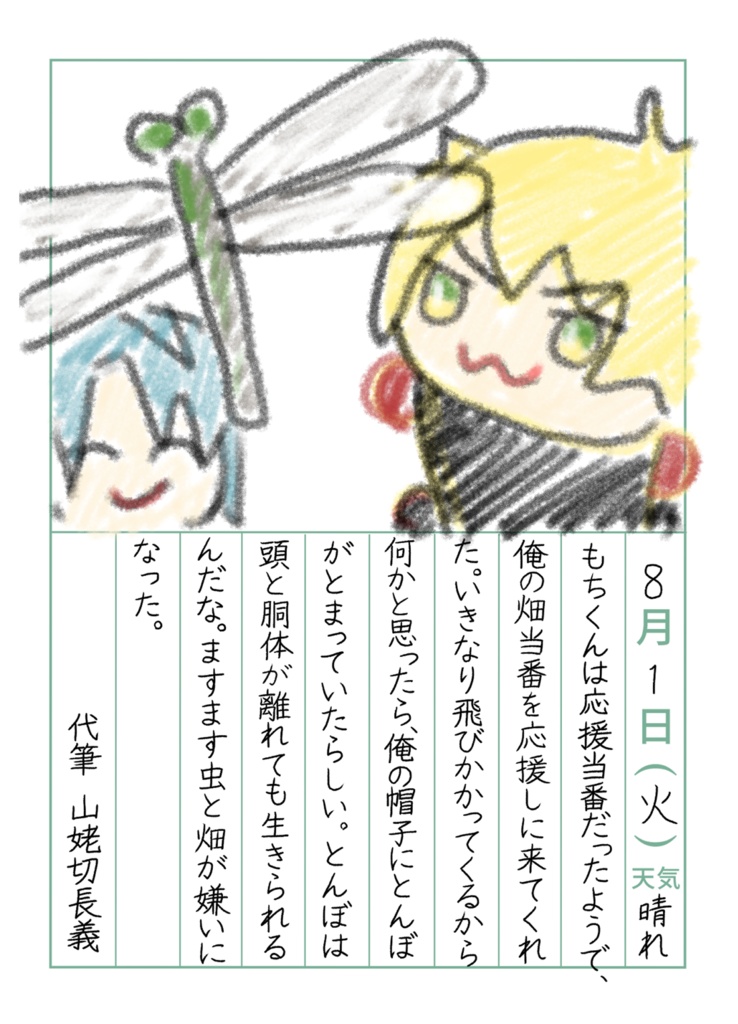 8月1日(火)天気 晴れ
もちくんは応援当番だったようで、
俺の畑当番を応援しに来てくれ
た。いきなり飛びかかってくるから
何かと思ったら、俺の帽子にとんぼ
がとまっていたらしい。とんぼは
頭と胴体が離れても生きられる
んだな。ますます虫と畑が嫌いに
なった。
代筆 山姥切長義